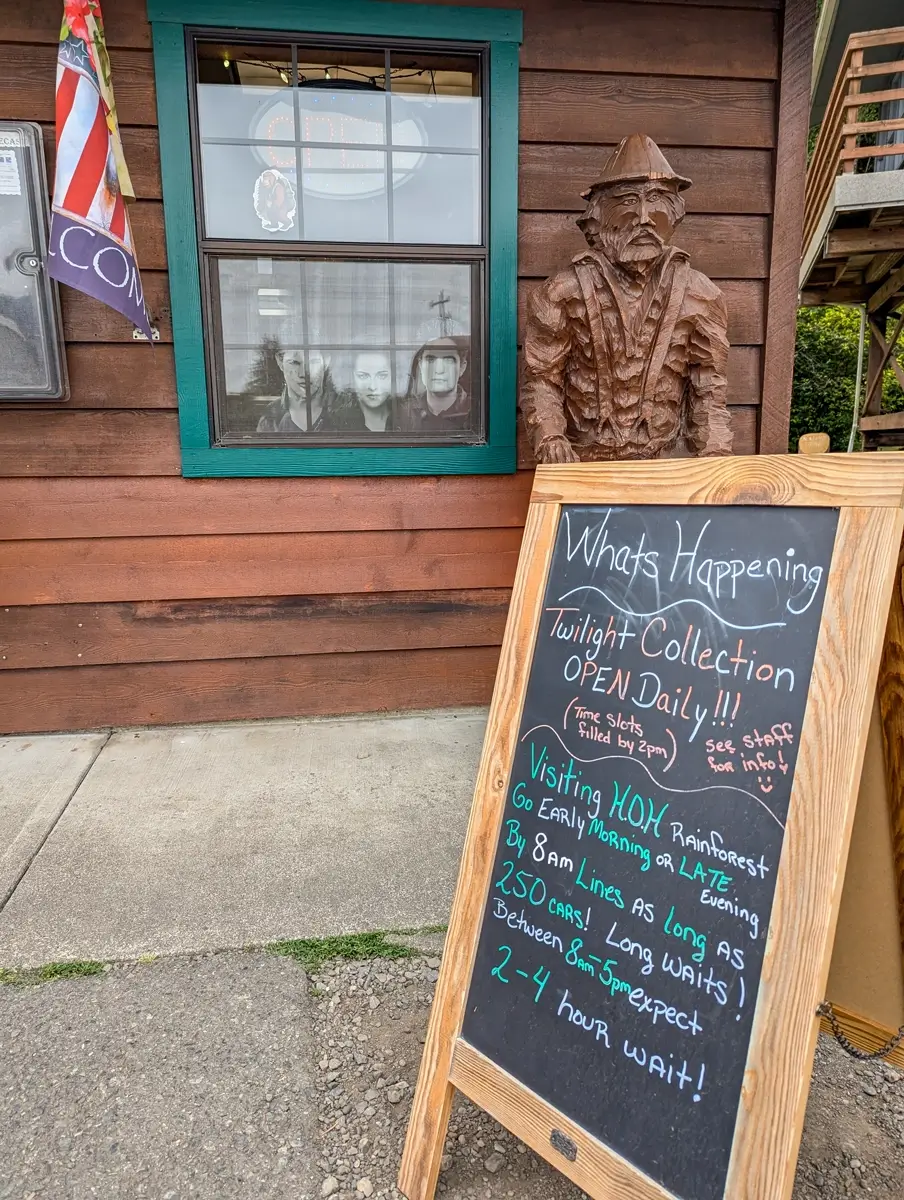 ECAS
OPEN
LCON
Whats Happening
Twilight Collection
OPEN Daily!!!
(Time slots
filled by 2pm)
see staff
for info!
Visiting H.O.H Rainforest
Go Early Morning or LATE
Evening
By 8am Lines as long as
250 cars! Long waits!
Between 8am-5pm expect
2-4 hour wait!